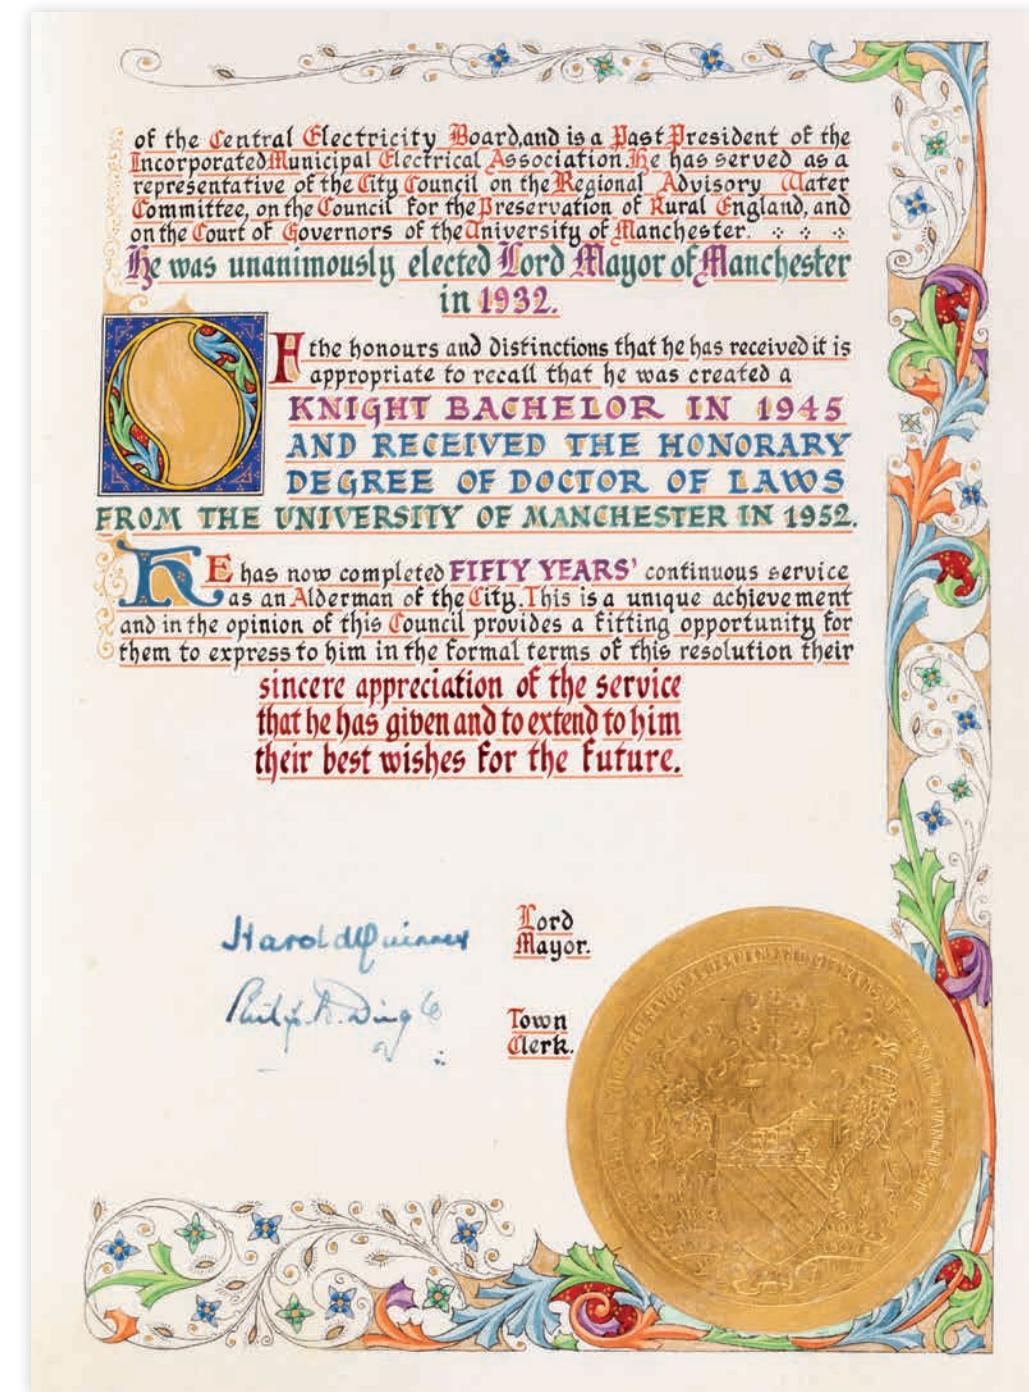 of the Central Electricity Board, and is a Past President of the
Incorporated Municipal Electrical Association. He has served as a
representative of the City Council on the Regional Advisory Water
Committee, on the Council for the Preservation of Rural England, and
on the Court of Governors of the University of Manchester.
He was unanimously elected Lord Mayor of Manchester
in 1932.
OF the honours and distinctions that he has received it is
appropriate to recall that he was created a
KNIGHT BACHELOR IN 1945
AND RECEIVED THE HONORARY
DEGREE OF DOCTOR OF LAWS
FROM THE UNIVERSITY OF MANCHESTER IN 1952.
HE has now completed FIFTY YEARS' continuous service
as an Alderman of the City. This is a unique achievement
and in the opinion of this Council provides a fitting opportunity for
them to express to him in the formal terms of this resolution their
sincere appreciation of the service
that he has given and to extend to him
their best wishes for the future.
Harold Quinney Lord
Mayor.
Philip B. Dingle Town
Clerk.